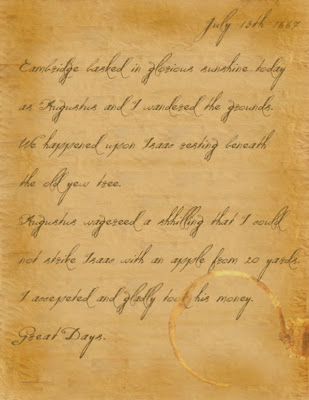 July 15th 1667
Cambridge basked in glorious sunshine today
as Augustus and I wandered the grounds.
We happened upon Isaac resting beneath
the old yew tree.
Augustus wagereed a shhilling that I could
not strike Isaac with an apple from 20 yards.
I accepeted and gladly took his money.
Great Days.